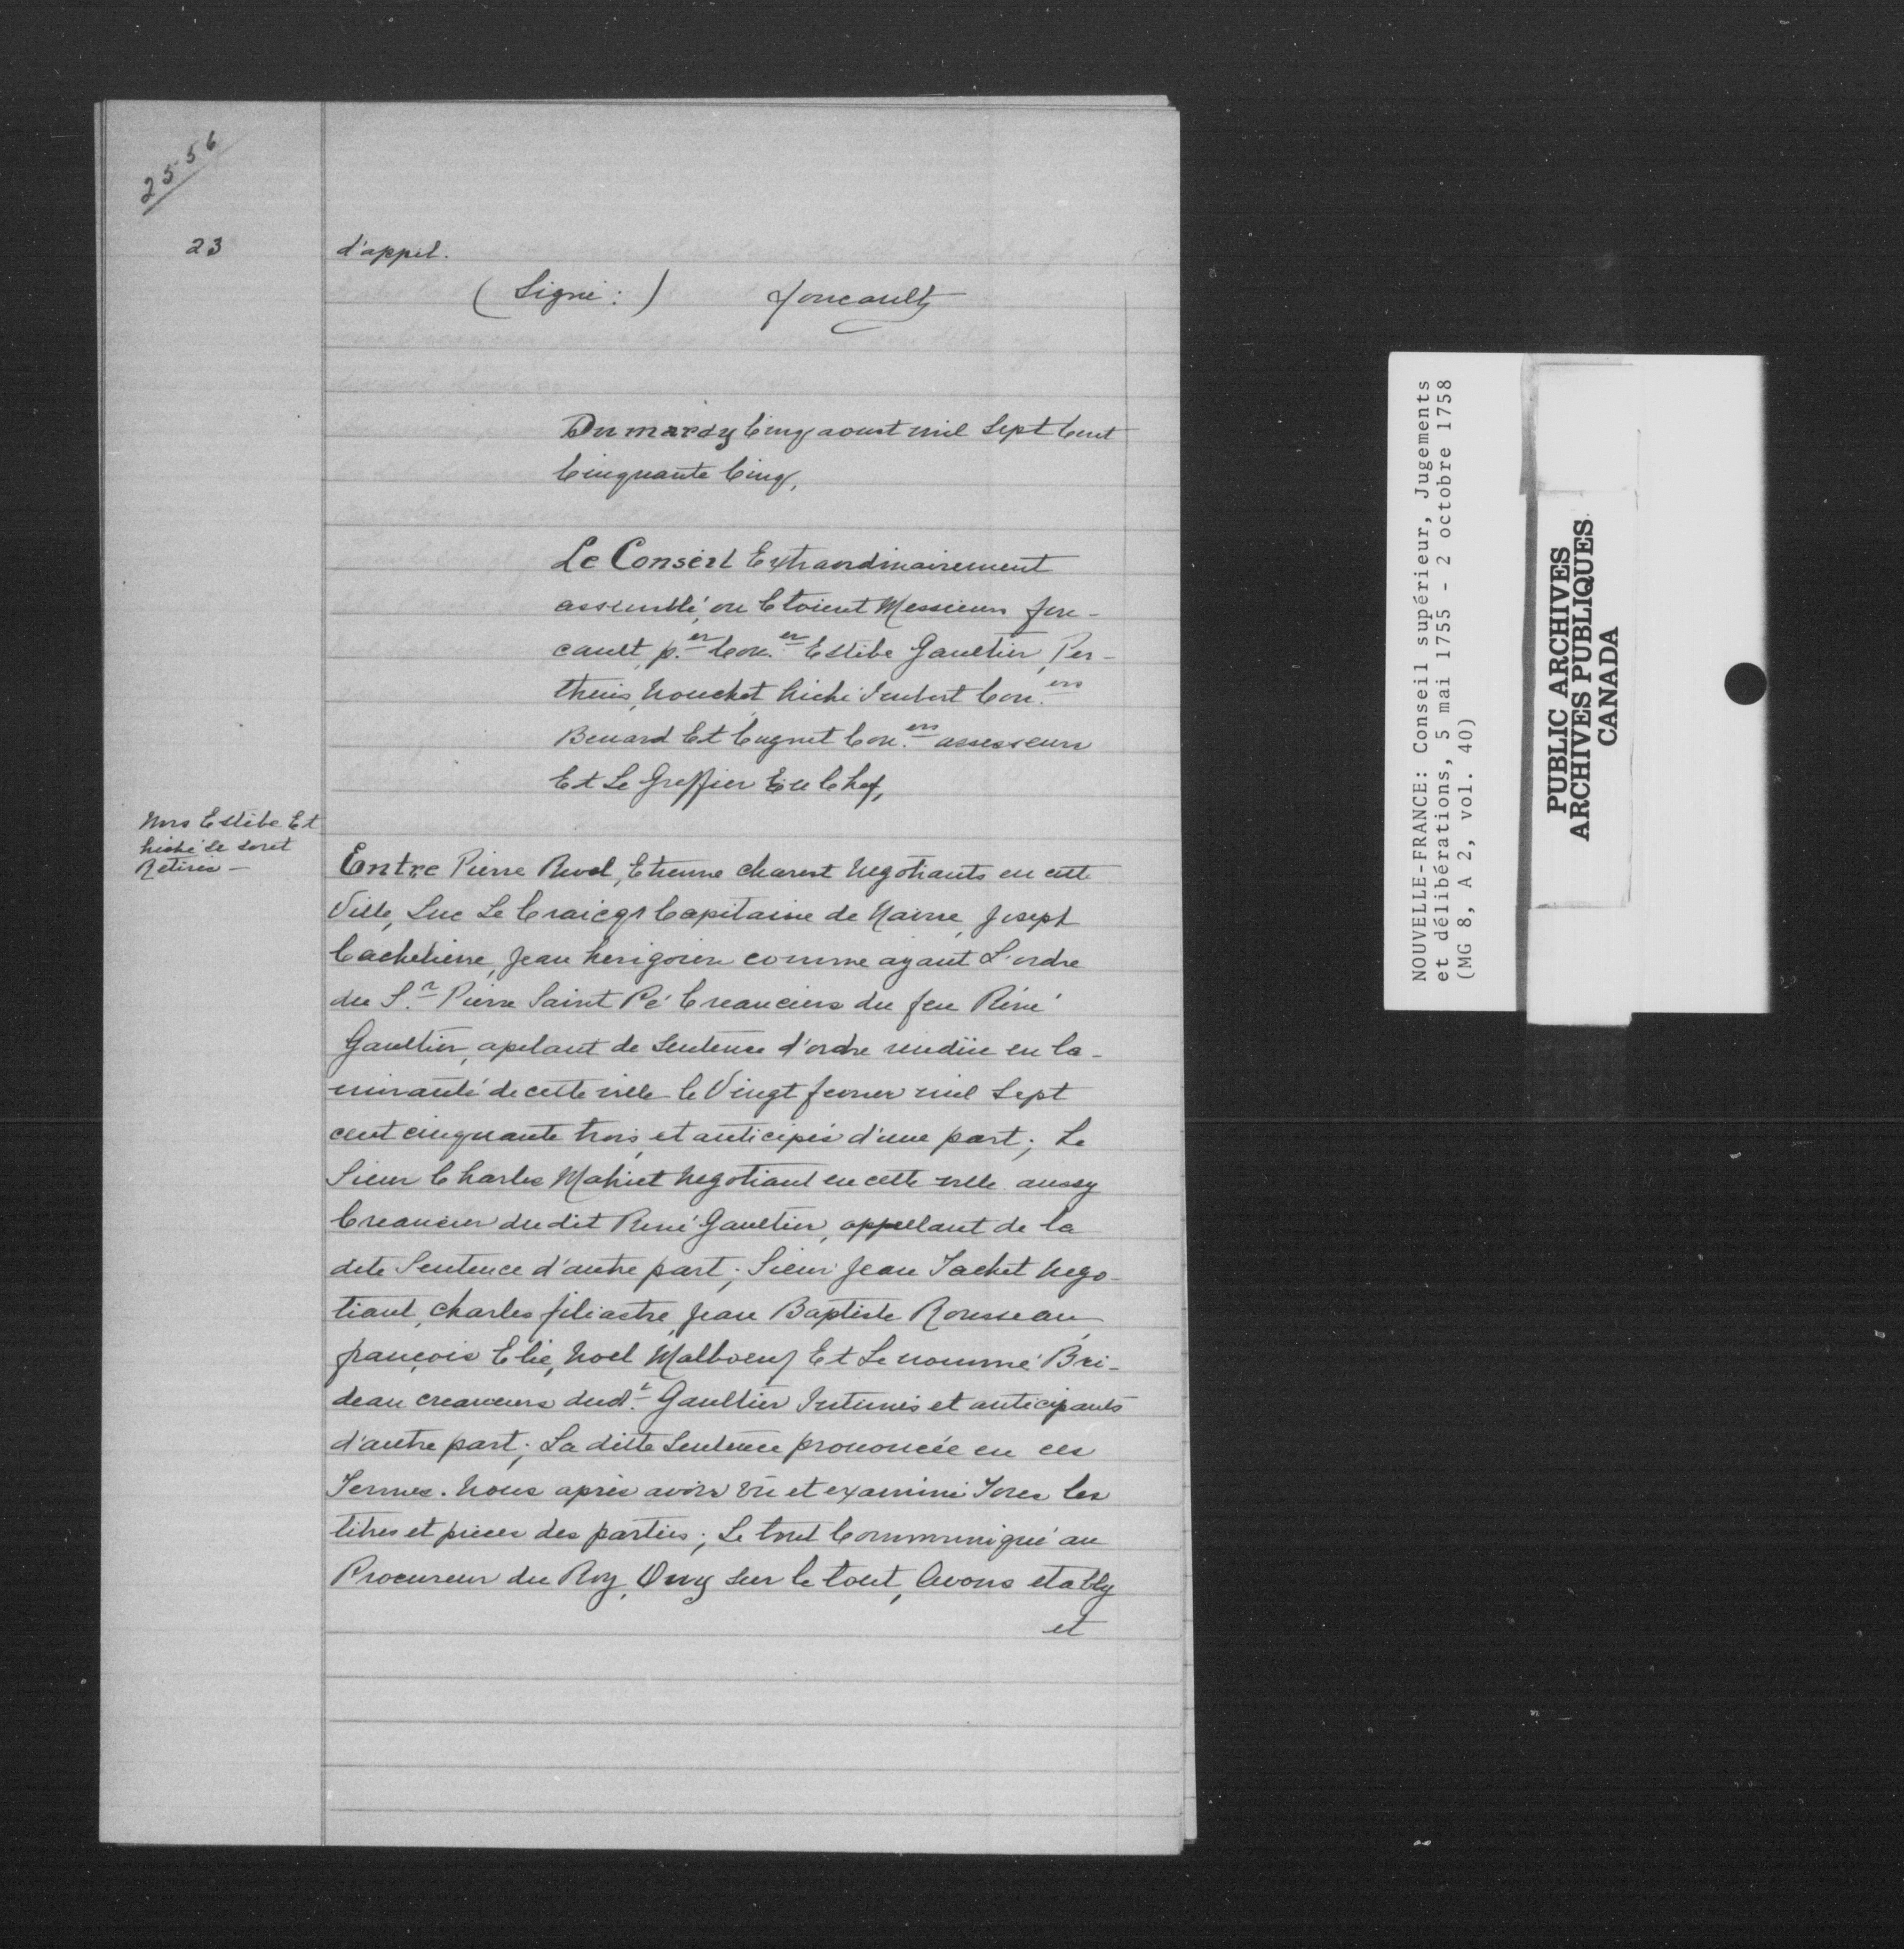 25-56
23
d'appel.
(Signé:) foucault
Du mardy Cinq aoust mil Sept Cent
Cinquante Cinq,
Le Conseil Extraordinairement
assemblé, ou Etoient Messieurs fou-
cault, p.er Con.er Estèbe Gaultier, Per-
thuis, Nouchet hiché Imbert Con.ers
Benard Et Cugnet Con.ers assesseurs
Et Le Greffier En Chef,
Mrs Estèbe Et
hiché Se sont
Retirés -
Entre Pierre Revol, Etienne charest Negotiants en cette
Ville, Luc Le Capitaine de Navire, Joseph
Cachelievre, Jean herigoien comme ayant L'ordre
du S.r Pierre Saint Pé Creanciers du feu Réné
Gaultier, apelant de Sentence d'ordre rendüe en la-
mirauté de cette ville le Vingt fevrier mil Sept
cent cinquante trois, et anticipés d'une part; Le
Sieur Charles Mahiet Negotiant en cette ville aussy
Creancier du dit René Gaultier, appellant de la
dite Sentence d'autre part; Sieur Jean Tachet Nego-
tiant, charles filiastre, Jean Baptiste Rousseau,
françois Elie, Noel Malboeuf Et Le nommé Bri-
deau creanciers dud.t Gaultier Intimés et anticipants
d'autre part; La ditte Sentence prononcée en ces
Termes. Nous après avoir vû et examiné Tous les
titres et pieces des parties; Le tout Communiqué au
Procureur du Roy, Ouy sur le tout, Avons etably
et
NOUVELLE-FRANCE: Conseil supérieur, Jugements
et délibérations, 5 mai 1755 - 2 octobre 1758
(MG 8, A 2, vol. 40)
PUBLIC ARCHIVES
ARCHIVES PUBLIQUES
CANADA